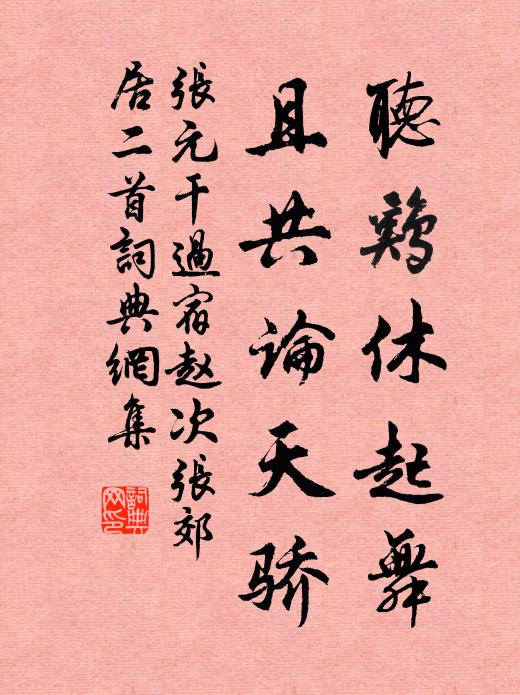 聽鷄休起舞
且共論天骄
張元干過宿赵次張郊
居二首詞典網集
詞典
网印